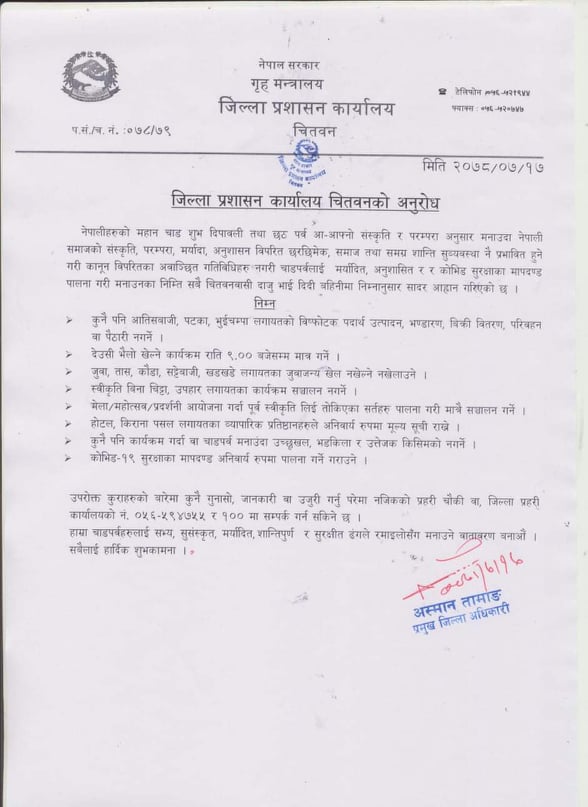 नेपाल सरकार
गृह मन्त्रालय
जिल्ला प्रशासन कार्यालय
चितवन
टेलिफोन ०५६-५२१९४४
फ्याक्स : ०५६-५२०७४७
प.सं./च. नं. :०७८/७९
मिति २०७८/०७/१७
जिल्ला प्रशासन कार्यालय चितवनको अनुरोध
नेपालीहरुको महान चाड शुभ दिपावली तथा छट पर्व आ-आफ्नो संस्कृति र परम्परा अनुसार मनाउदा नेपाली
समाजको संस्कृति, परम्परा, मर्यादा, अनुशासन विपरित छरछिमेक, समाज तथा समग्र शान्ति सुव्यवस्था नै प्रभावित हुने
गरी कानून विपरितका अवाञ्छित गतिबिधिहरु नगरी चाडपर्वलाई मर्यादित, अनुशासित र र कोभिड सुरक्षाका मापदण्ड
पालना गरी मनाउनका निम्ति सबै चितवनवासी दाजु भाई दिदी बहिनीमा निम्नानुसार सादर आह्वान गरिएको छ ।
निम्न
➤ कुनै पनि आतिसवाजी, पटका, भुईचम्पा लगायतको विष्फोटक पदार्थ उत्पादन, भण्डारण, बिक्री बितरण, परिवहन
वा पैठारी नगर्ने ।
➤ देउसी भैलो खेल्ने कार्यक्रम राति ९.०० बजेसम्म मात्र गर्ने ।
➤ जुवा, तास, कौडा, सट्टेवाजी, खडखडे लगायतका जुवाजन्य खेल नखेल्ने नखेलाउने ।
➤ स्वीकृति बिना चिट्ठा, उपहार लगायतका कार्यक्रम सञ्चालन नगर्ने ।
➤ मेला/महोत्सव/प्रदर्शनी आयोजना गर्दा पूर्व स्वीकृति लिई तोकिएका सर्तहरु पालना गरी मात्रै सञ्चालन गर्ने ।
➤ होटल, किराना पसल लगायतका व्यापारिक प्रतिष्ठानहरुले अनिवार्य रुपमा मूल्य सूची राख्ने ।
➤ कुनै पनि कार्यक्रम गर्दा वा चाडपर्व मनाउंदा उच्छृखल, भडकिला र उत्तेजक किसिमको नगर्ने ।
➤ कोभिड-१९ सुरक्षाका मापदण्ड अनिवार्य रुपमा पालना गर्ने गराउने ।
उपरोक्त कुराहरुको बारेमा कुनै गुनासो, जानकारी वा उजुरी गर्नु परेमा नजिकको प्रहरी चौकी वा, जिल्ला प्रहरी
कार्यालयको नं. ०५६-५९४७५५ र १०० मा सम्पर्क गर्न सकिने छ ।
हाम्रा चाडपर्वहरुलाई सभ्य, सुसंस्कृत, मर्यादित,शान्तिपुर्ण र सुरक्षीत ढंगले रमाइलोसँग मनाउने वातावरण बनाऔं ।
सबैलाई हार्दिक शुभकामना ।
अस्मान तामाङ
प्रमुख जिल्ला अधिकारी